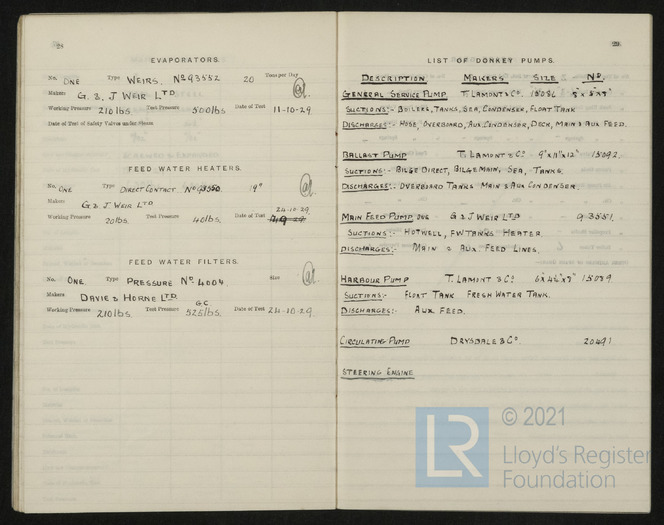 28
EVAPORATORS.
No. ONE Type WEIRS. No 93552 20 Tons per Day
Makers G. & J WEIR LTD
Working Pressure 210 lbs. Test Pressure 500 lbs Date of Test 11-10-29
Date of Test of Safety Valves under Pressure
FEED WATER HEATERS.
No. ONE Type DIRECT CONTACT No 93550 19"
Makers G & J WEIR LTD
24-10-29.
Working Pressure 20 lbs. Test Pressure 40 lbs. Date of Test
FEED WATER FILTERS.
No. ONE Type PRESSURE No. 4004. Size
Makers DAVIE & HORNE LTD.
G.C.
Working Pressure 210 lbs Test Pressure 525 lbs. Date of Test 24-10-29.
29
LIST OF DONKEY PUMPS.
DESCRIPTION MAKERS SIZE NO.
GENERAL SERVICE PUMP T. LAMONT & Co.
SUCTIONS:- BOILERS, TANKS, SEA, CONDENSER, FLOAT TANK
DISCHARGES:- HOSE, OVERBOARD, AUX. CONDENSER, DECK, MAIN & AUX FEED.
BALLAST PUMP T. LAMONT & Co 9"x11"x12" 15092.
SUCTIONS:- BILGE DIRECT, BILGE MAIN, SEA, TANKS.
DISCHARGES:- OVERBOARD TANKS MAIN & AUX CONDENSER.
MAIN FEED PUMP ONE G & J WEIR LTD 93551.
SUCTIONS:- HOTWELL, F.W TANKS HEATER.
DISCHARGES:- MAIN & AUX FEED LINES.
HARBOUR PUMP T. LAMONT & Co 15089
SUCTIONS:- FLOAT TANK FRESH WATER TANK.
DISCHARGES:- AUX FEED.
CIRCULATING PUMP DRYSDALE & Co. 20491
STEERING ENGINE
LR © 2021
Lloyd's Register
Foundation